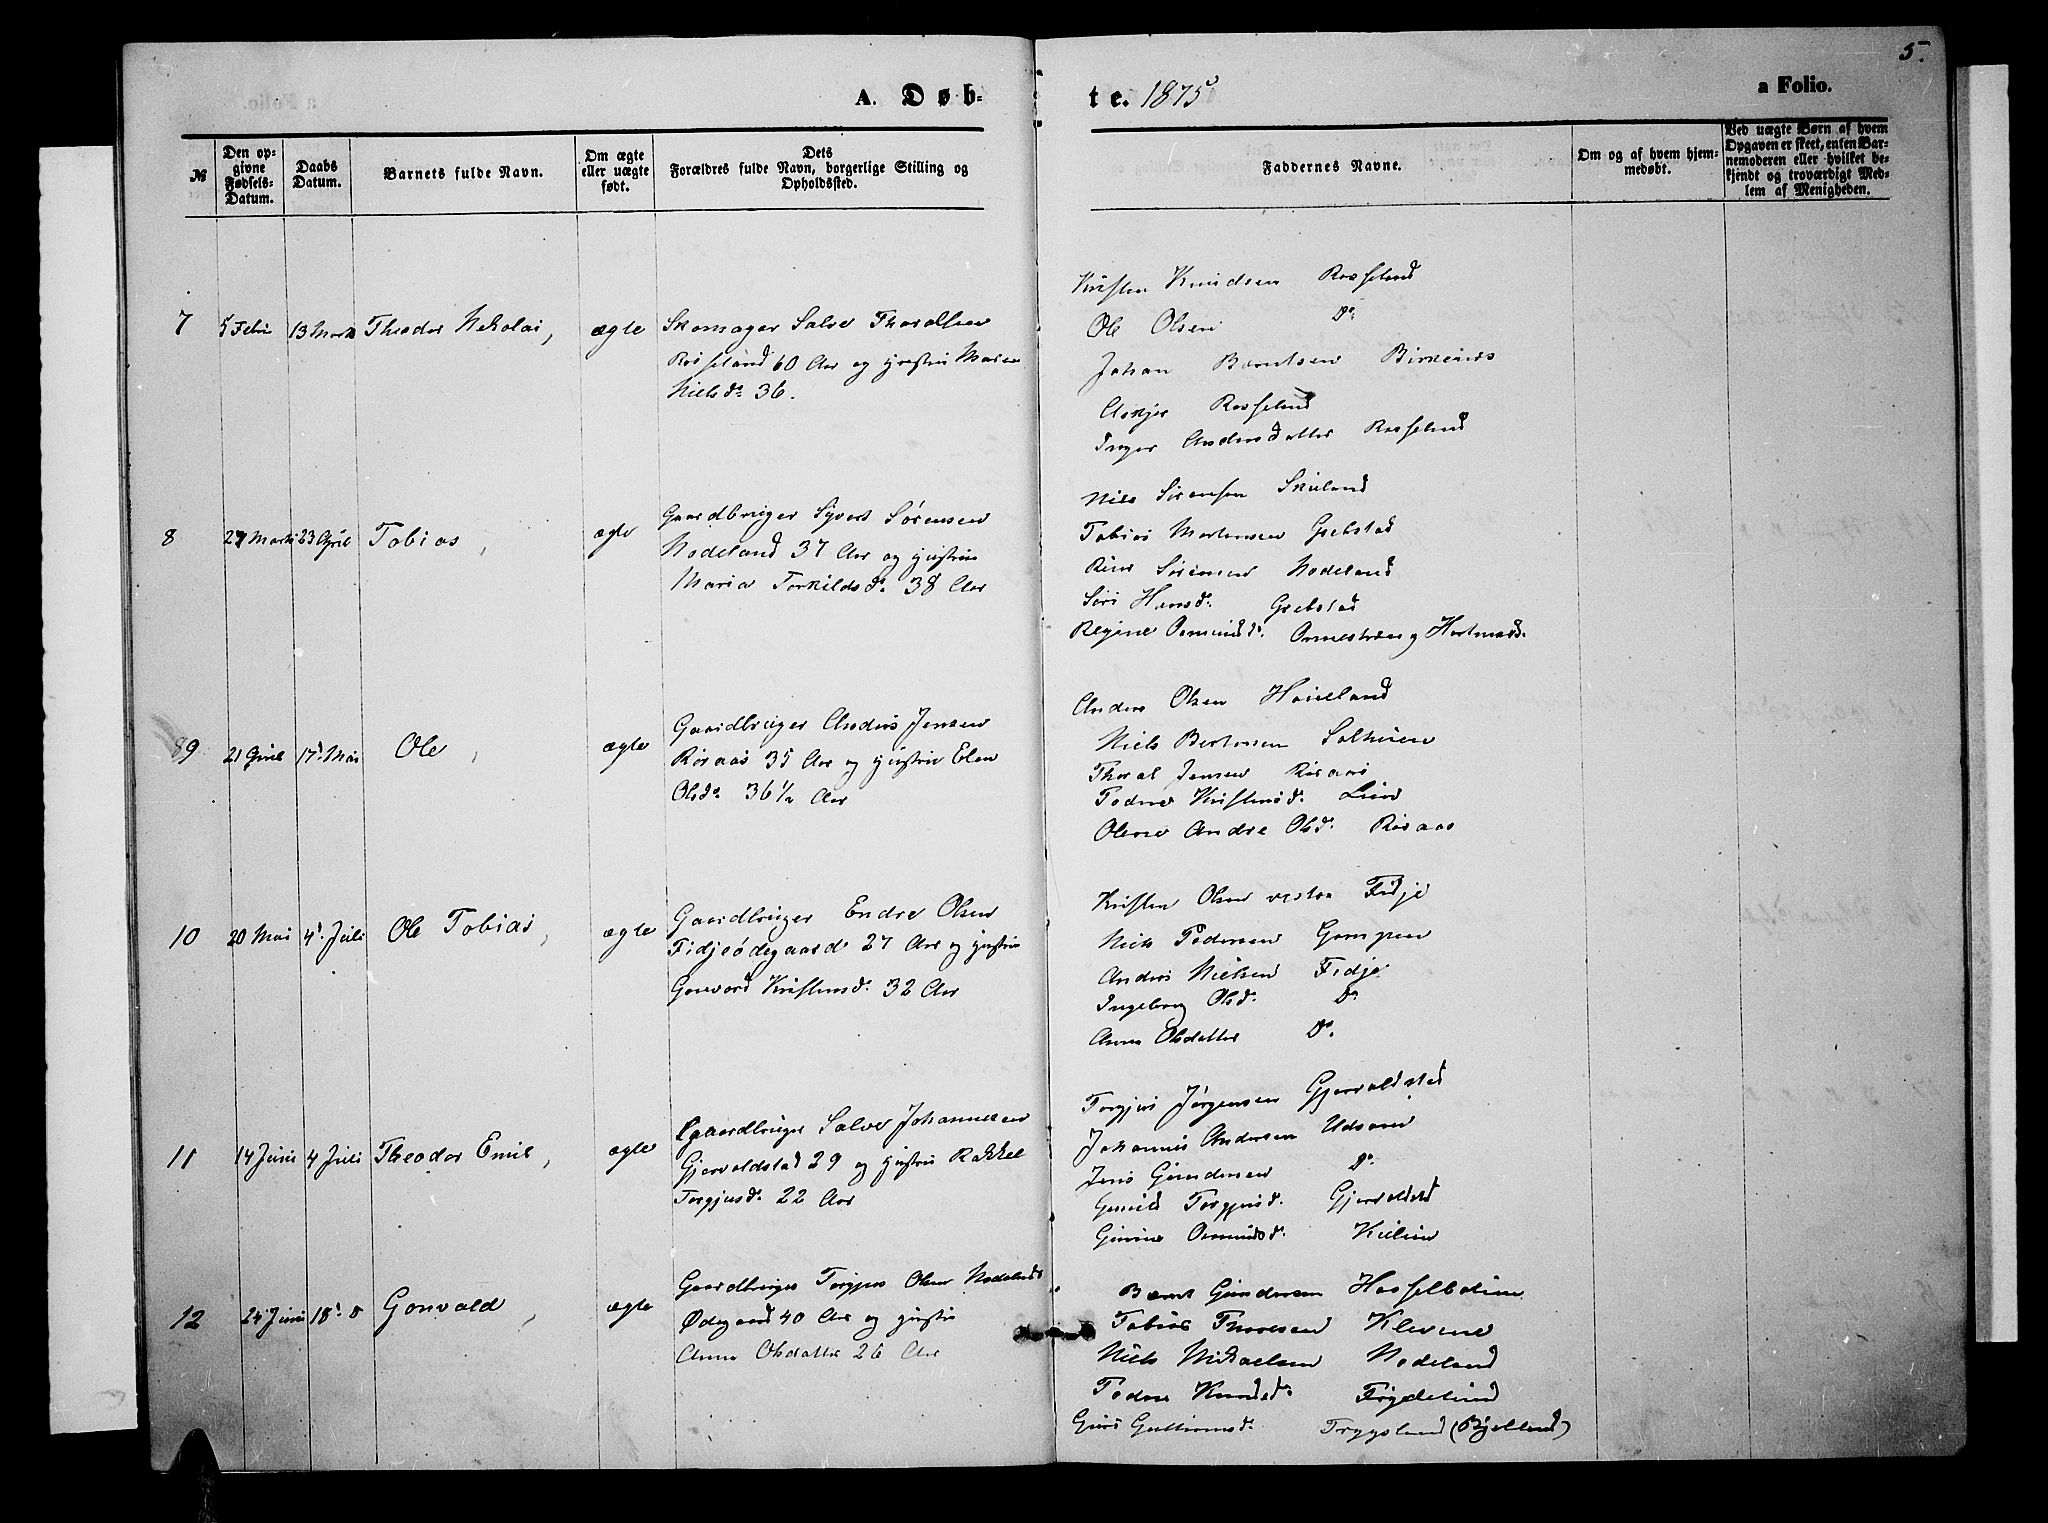 5.
A. Døb-
te. 1875
a Folio.
№
Den op-
givne
Fødsels-
Datum.
Daabs
Datum.
Barnets fulde Navn.
Om ægte
eller uægte
født.
Dets
Forældres fulde Navn, borgerlige Stilling og
Opholdssted.
Faddernes Navne.
Om og af hvem hjem-
medøbt.
Ved uægte Børn af hvem
Opgaven er skeet, enten Bar-
nemoderen eller hvilket be-
kjendt og troværdigt Med-
lem af Menigheden.
7 5 Febr 13 Marts Theodor Nekolai, ægte
Skomager Salve Thoralfsen
Rosseland 60 Aar og Hustru Maren
Nielsd. 36.
Kristen Knudsen Rosseland
Ole Olsen Do.
Johan Berntsen Birkenes
Rosseland
Inger Andersdatter Rosseland
8 27 Marts 23 April Tobias, ægte
Gaardbruger Syvert Sørensen
Nodeland 37 Aar og Hustru
Maria Torkildsd. 38 Aar
Nils Sørensen Skuland
Tobias Mortensen Grebstad
Sørensen Nodeland
Siri Hansd. Grebstad
Regine Osmundsd.
89 21 April 17. Mai Ole, ægte
Gaardbruger Anders Jensen
Røraas 35 Aar og Hustru Elen
Olsd. 36 1/2 Aar
Anders Olsen
Niels Berntsen
Thoral Jensen Røraas
Todne Kristensd. Lien
Olene Andre Olsd. Røraas
10 20 Mai 4. Juli Ole Tobias, ægte
Gaardbruger Endre Olsen
Fidjeødegaard 27 Aar og Hustru
Gunvord Kristensd. 32 Aar
Kristen Olsen vestre Fidje
Niels Pedersen
Anders Nielsen Fidje
Ingeborg Olsd. Do.
Anna Olsdatter Do.
11 14 Juni 4 Juli Theodor Emil, ægte
Gaardbruger Salve Johannesen
Gjervoldstad 29 og Hustru Rakkel
Torgjusd. 22 Aar
Torgjus Jørgensen Gjervoldstad
Johannes Andersen
Jens Gundersen Do.
Gunild Torgjusd. Gjervoldstad
Osmundsd.
12 24 Juni 18. Gonvald, ægte
Gaardbruger Torgjus Olsen Nodelands
Ødegaard 40 Aar og Hustru
Anna Olsdatter 26 Aar
Bernt Gundersen
Tobias Klevene
Niels Mikaelsen Nodeland
Todne Knudsd.
Guri Guttormsd. Trygsland (Bjelland)